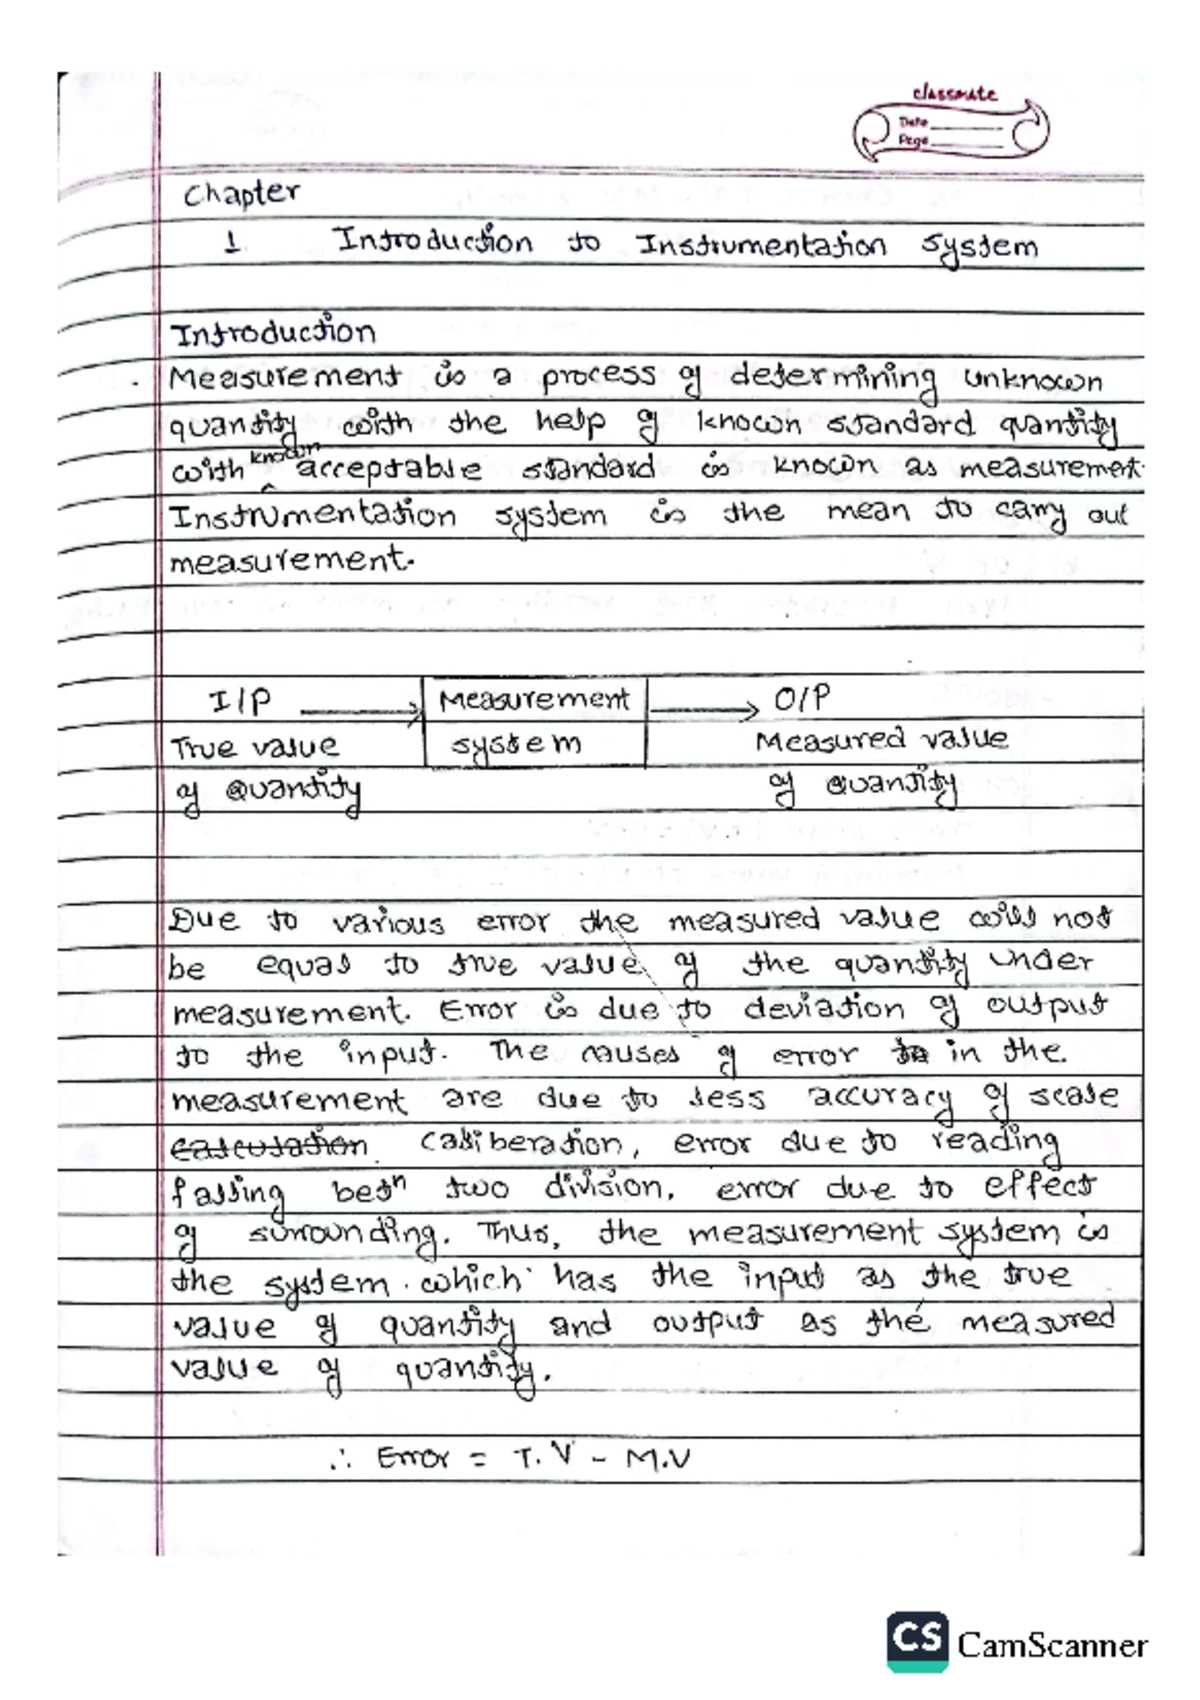 classmate
Date
Page
Chapter
1. Introduction to Instrumentation system
Introduction
. Measurement is a process of determining unknown
quantity with the help of known standard quantity
with known acceptable standard is known as measurement.
Instrumentation system is the mean to carry out
measurement.
I/P Measurement O/P
True value system Measured value
of Quantity of Quantity
Due to various error the measured value will not
be equal to true value of the quantity under
measurement. Error is due to deviation of output
to the input. The causes of error in the
measurement are due to less accuracy of scale
calculation caliberation, error due to reading
falling betn two division, error due to effect
of surrounding. Thus, the measurement system is
the system which has the input as the true
value of quantity and output as the measured
value of quantity.
∴ Error = T.V - M.V
CS CamScanner